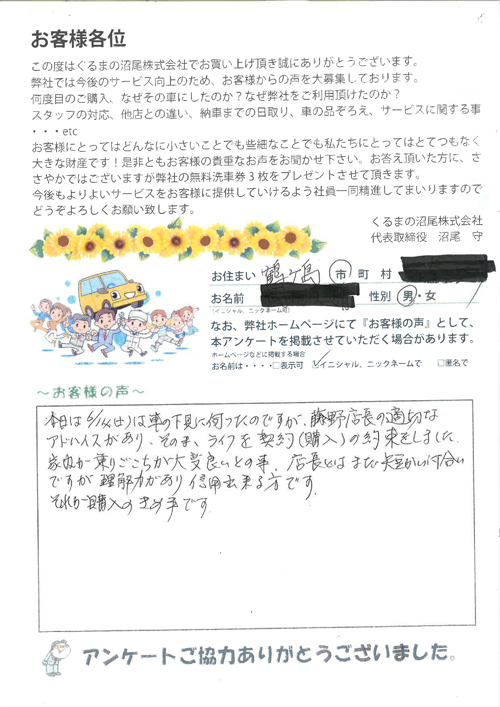 お客様各位
この度はくるまの沼尾株式会社でお買い上げ頂き誠にありがとうございます。
弊社では今後のサービス向上のため、お客様からの声を大募集しております。
何度目のご購入、なぜその車にしたのか？なぜ弊社をご利用頂けたのか？
スタッフの対応、他店との違い、納車までの日取り、車の品ぞろえ、サービスに関する事
・・・etc
お客様にとってはどんなに小さいことでも些細なことでも私たちにとってはとてつもなく
大きな財産です！是非ともお客様の貴重なお声をお聞かせ下さい。お答え頂いた方に、さ
さやかではございますが弊社の無料洗車券３枚をプレゼントさせて頂きます。
今後もよりよいサービスをお客様に提供していけるよう社員一同精進してまいりますので
どうぞよろしくお願い致します。
くるまの沼尾株式会社
代表取締役　沼尾　守
お住まい 鶴ヶ島 市 町 村
お名前 性別 男・女
（イニシャル、ニックネーム可）
なお、弊社ホームページにて『お客様の声』として、
本アンケートを掲載させていただく場合があります。
ホームページなどに掲載する場合
お名前は・・・・□表示可 ☑イニシャル、ニックネームで □匿名で
～お客様の声～
本日は(土)は車の下見に伺ったのですが、藤野店長の適切な
アドバイスがあり、そのまゝライフを契約(購入)の約束をしました
家内が乗りごこちが大変良いとの事、店長とはまだ短かい付合い
ですが理解力があり信用出来る方です
それが購入のきめ手です
アンケートご協力ありがとうございました。